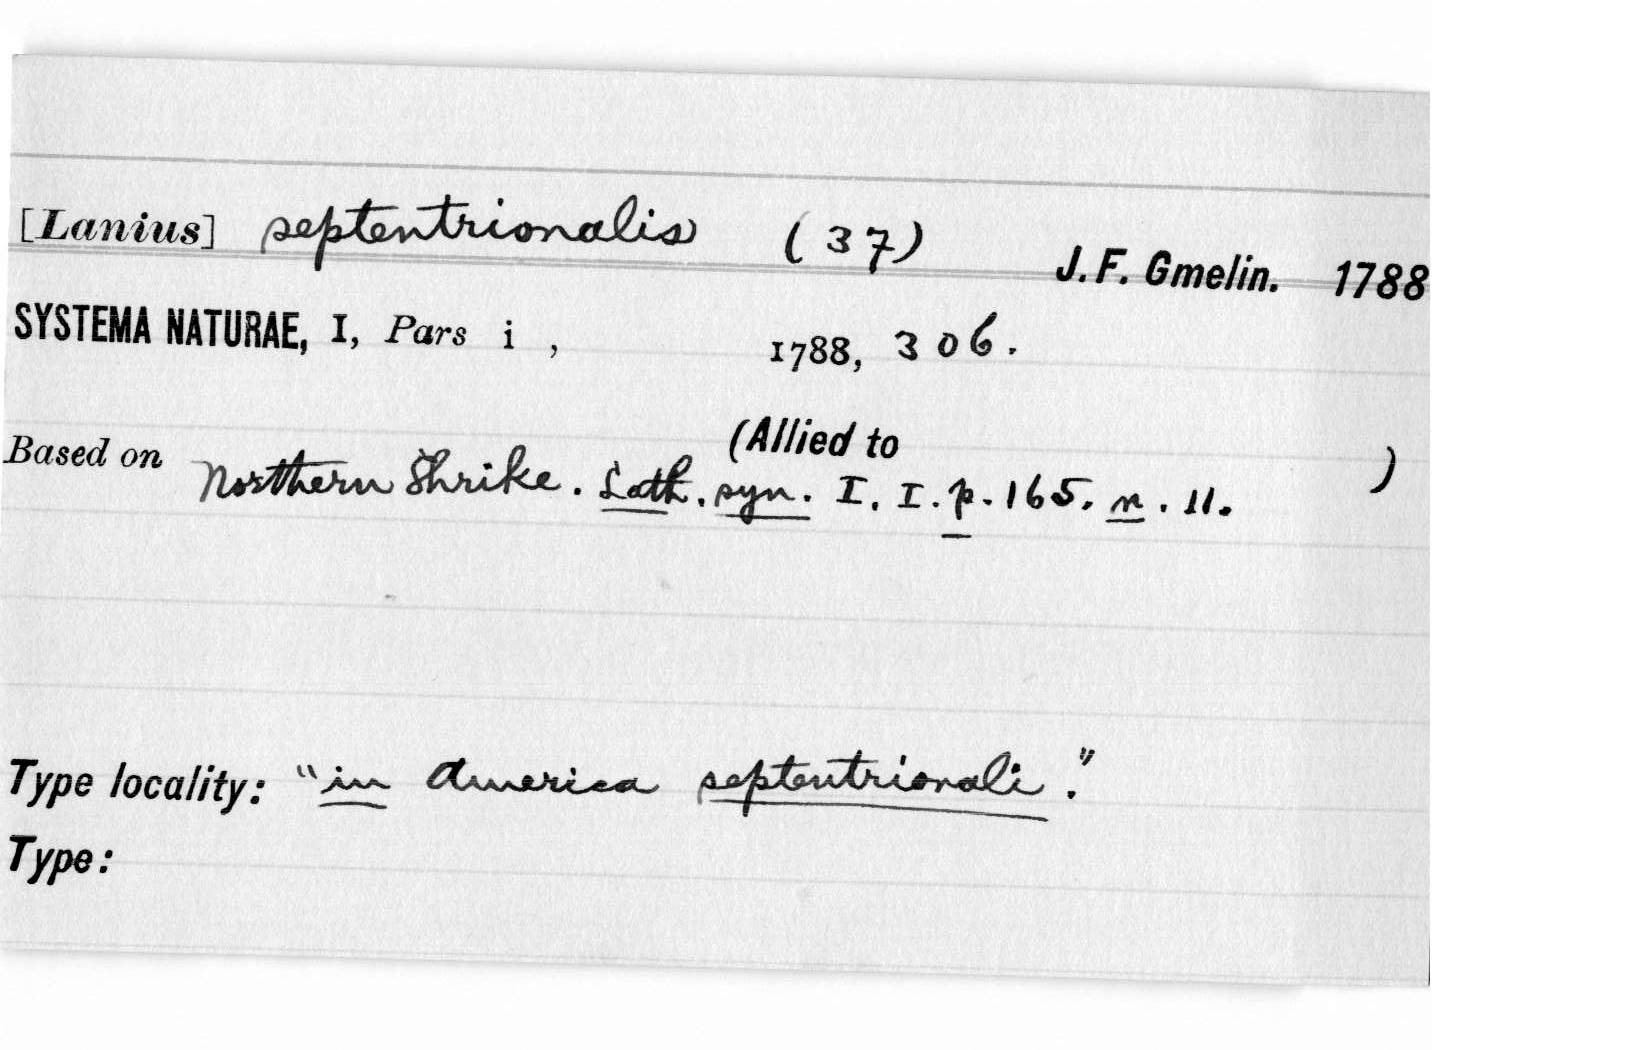 [Lanius] septentrionalis (37) J. F. Gmelin. 1788
SYSTEMA NATURAE, I, Pars i , 1788, 306.
(Allied to )
Based on Northern Shrike. Lath. syn. I. I. p. 165. n. 11.
Type locality: "in America septentrionali."
Type: